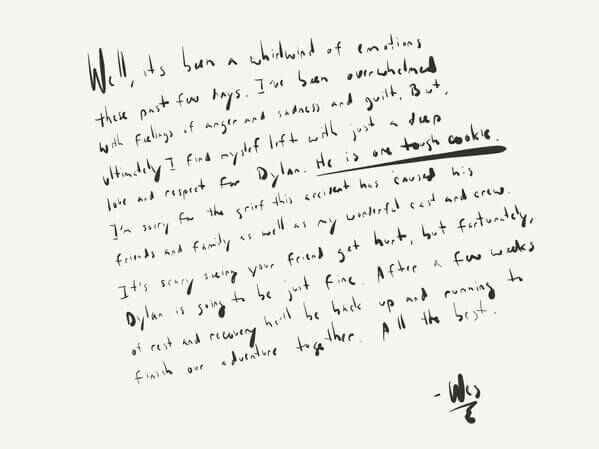 Well, its been a whirlwind of emotions
these past few days. I've been overwhelmed
with feelings of anger and sadness and guilt. But,
ultimately I find myself left with just a deep
love and respect for Dylan. He is one tough cookie.
I'm sorry for the grief this accident has caused his
friends and family as well as my wonderful cast and crew.
It's scary seeing your friend get hurt, but fortunately,
Dylan is going to be just fine. After a few weeks
of rest and recovery he'll be back up and running to
finish our adventure together. All the best.
- Wes